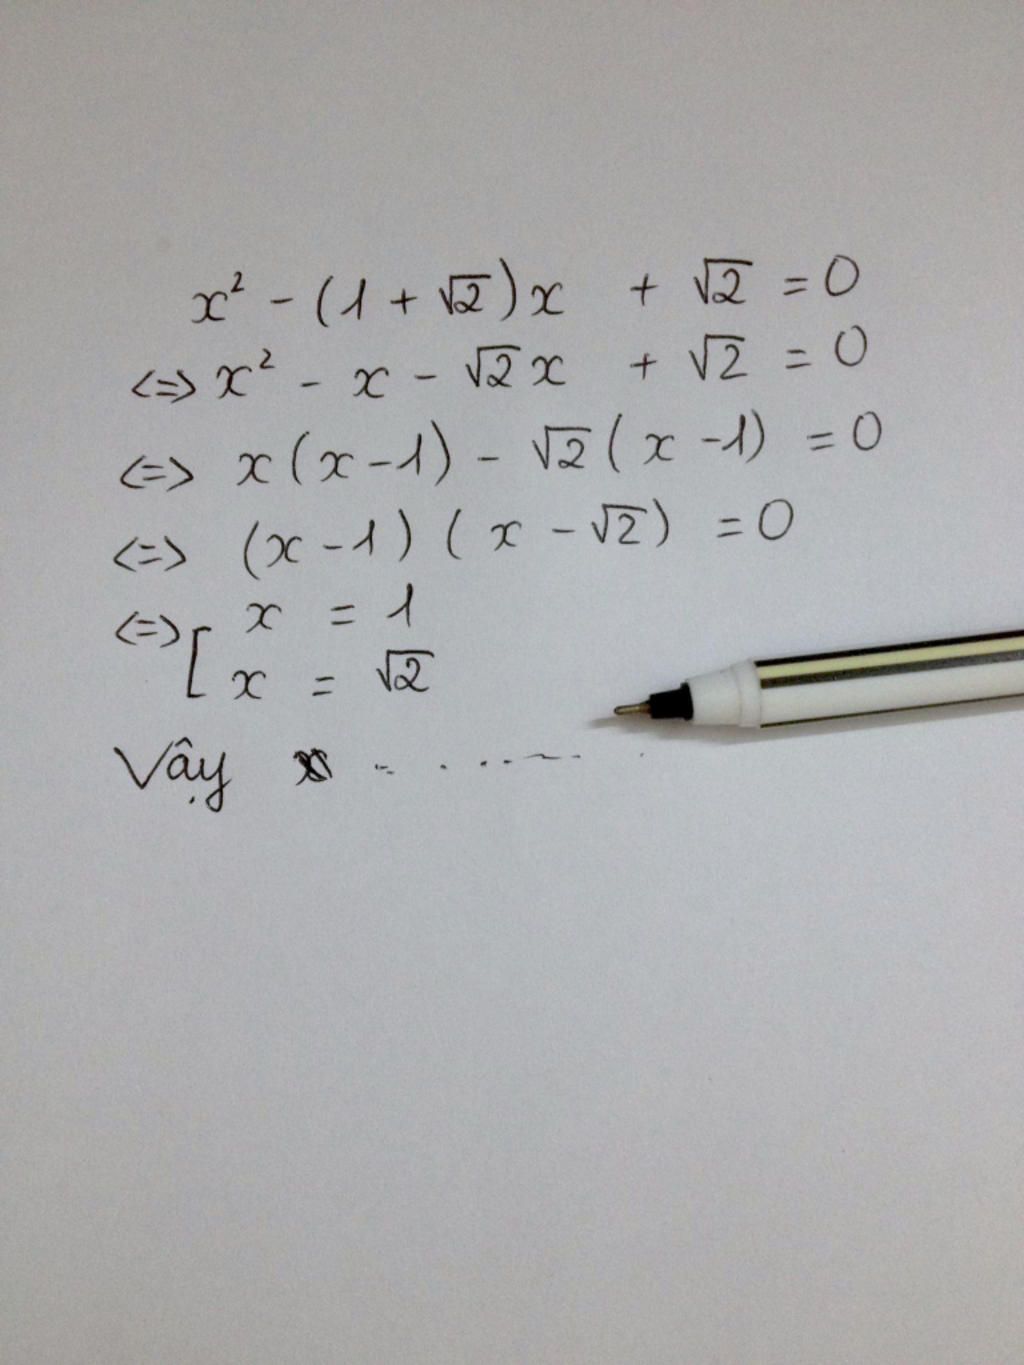 x² - (1 + √2)x + √2 = 0
<=> x² - x - √2x + √2 = 0
<=> x(x-1) - √2(x-1) = 0
<=> (x-1)(x-√2) = 0
<=> [ x = 1
x = √2
Vậy x ........